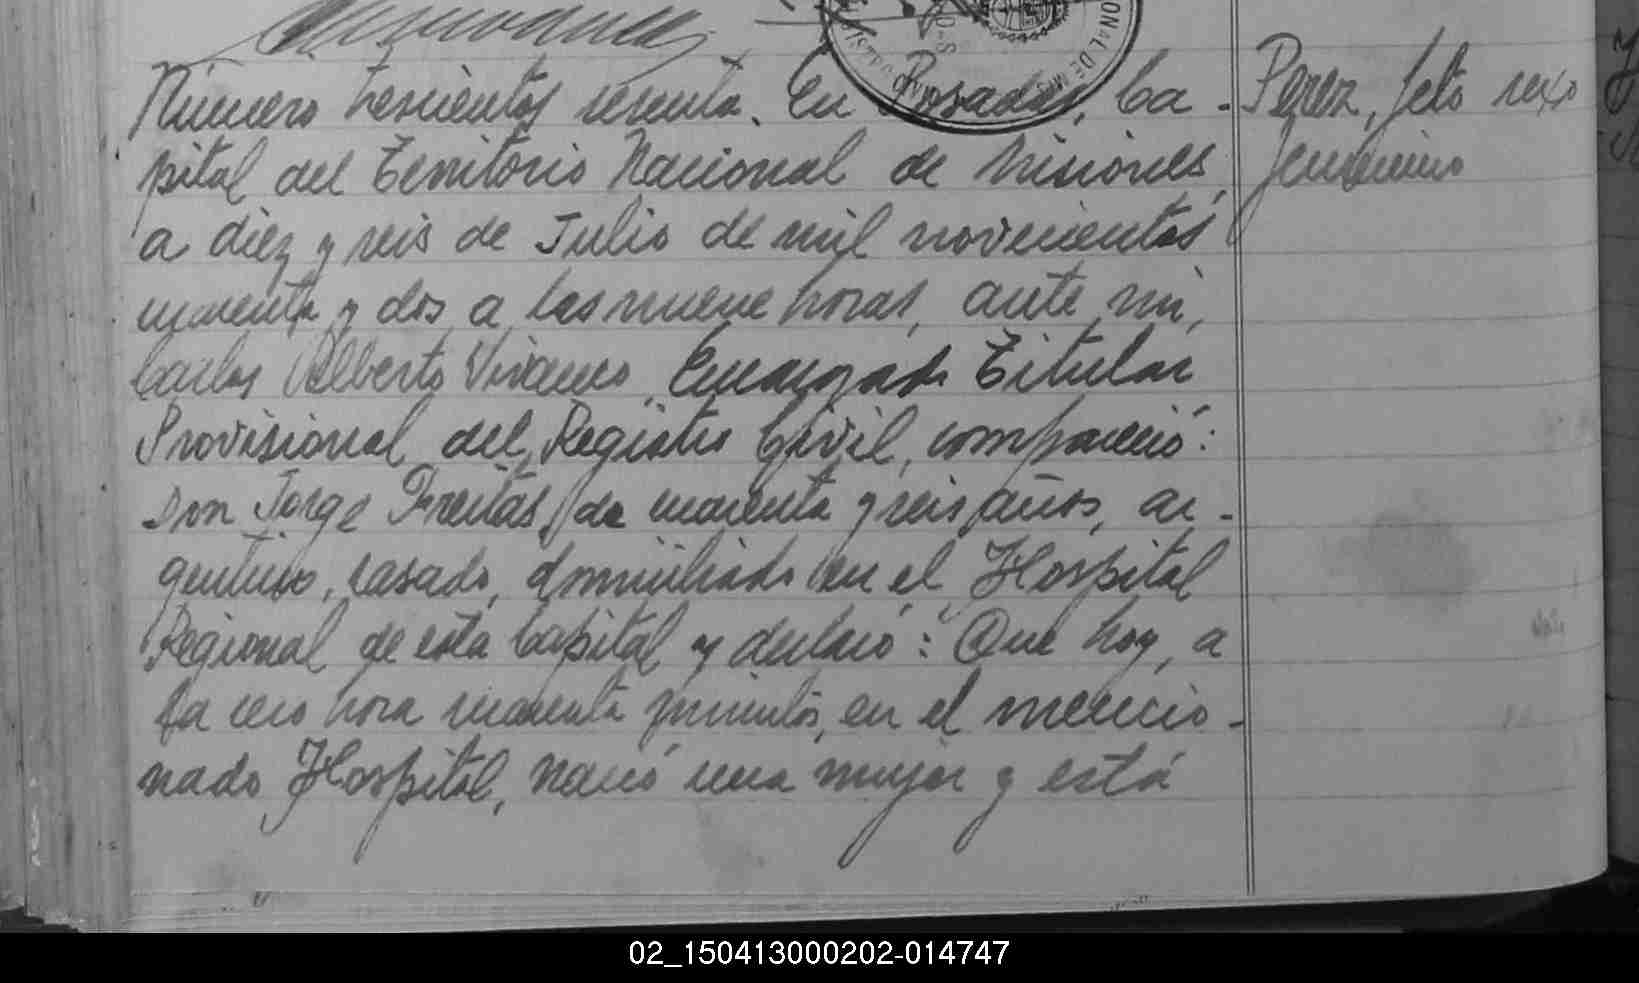 Número trescientos sesenta. En Posadas, Ca-
pital del Territorio Nacional de Misiones,
a diez y seis de Julio de mil novecientos
cuarenta y dos, a las nueve horas, ante mi,
Carlos Alberto Vivanco, Encargado Titular
Provisional del Registro Civil, compareció:
Don Jorge Freitas, de cuarenta y seis años, ar-
gentino, casado, domiciliado en el Hospital
Regional de esta Capital y declaró: Que hoy, a
la una hora cuarenta minutos, en el mencio-
nado Hospital, nació una mujer y está
Perez, feto sexo
femenino
02_150413000202-014747